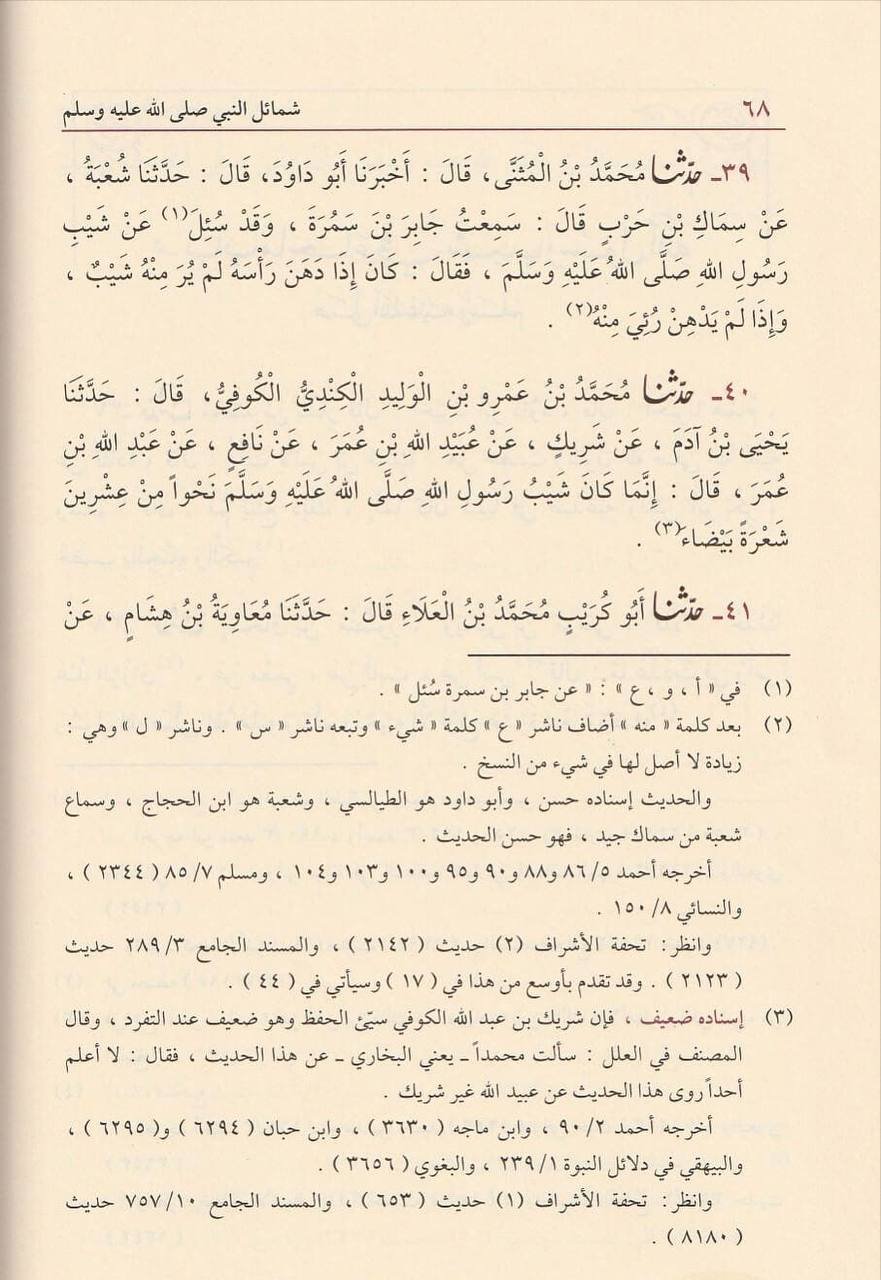 ٦٨ شمائل النبي صلى الله عليه وسلم
٣٩ـ حدّثنا مُحَمَّدُ بْنُ الْمُثَنَّى، قَالَ : أَخْبَرَنَا أَبُو دَاوُدَ، قَالَ : حَدَّثَنَا شُعْبَةُ ،
عَنْ سِمَاكِ بْنِ حَرْبٍ قَالَ : سَمِعْتُ جَابِرَ بْنَ سَمُرَةَ ، وَقَدْ سُئِلَ(١) عَنْ شَيْبِ
رَسُولِ اللهِ صَلَّى اللهُ عَلَيْهِ وَسَلَّمَ ، فَقَالَ : كَانَ إِذَا دَهَنَ رَأْسَهُ لَمْ يُرَ مِنْهُ شَيْبٌ ،
وَإِذَا لَمْ يَدْهِنْ رُئِيَ مِنْهُ(٢) .
٤٠ـ حدّثنا مُحَمَّدُ بْنُ عَمْرِو بْنِ الْوَلِيدِ الْكِنْدِيُّ الْكُوفِيُّ، قَالَ : حَدَّثَنَا
يَحْيَى بْنُ آدَمَ ، عَنْ شَرِيكٍ ، عَنْ عُبَيْدِ اللهِ بْنِ عُمَرَ ، عَنْ نَافِعٍ ، عَنْ عَبْدِ اللهِ بْنِ
عُمَرَ ، قَالَ : إِنَّمَا كَانَ شَيْبُ رَسُولِ اللهِ صَلَّى اللهُ عَلَيْهِ وَسَلَّمَ نَحْواً مِنْ عِشْرِينَ
شَعْرَةً بَيْضَاءَ(٣) .
٤١ـ حدّثنا أَبُو كُرَيْبٍ مُحَمَّدُ بْنُ الْعَلَاءِ قَالَ : حَدَّثَنَا مُعَاوِيَةُ بْنُ هِشَامٍ ، عَنْ
(١) في « أ ، و ، ع » : « عن جابر بن سمرة سُئل » .
(٢) بعد كلمة « منه » أضاف ناشر « ع » كلمة « شيء » وتبعه ناشر « س » . وناشر « ل » وهي :
زيادة لا أصل لها في شيء من النسخ .
والحديث إسناده حسن ، وأبو داود هو الطيالسي ، وشعبة هو ابن الحجاج ، وسماع
شعبة من سماك جيد ، فهو حسن الحديث .
أخرجه أحمد ٥/ ٨٦ و٨٨ و٩٠ و٩٥ و١٠٠ و١٠٣ و١٠٤ ، ومسلم ٧/ ٨٥ ( ٢٣٤٤ ) ،
والنسائي ٨/ ١٥٠ .
وانظر : تحفة الأشراف (٢) حديث ( ٢١٤٢ ) ، والمسند الجامع ٣/ ٢٨٩ حديث
( ٢١٢٣ ) . وقد تقدم بأوسع من هذا في ( ١٧ ) وسيأتي في ( ٤٤ ) .
(٣) إسناده ضعيف ، فإن شريك بن عبد الله الكوفي سيّئ الحفظ وهو ضعيف عند التفرد ، وقال
المصنف في العلل : سألت محمداً ـ يعني البخاري ـ عن هذا الحديث ، فقال : لا أعلم
أحداً روى هذا الحديث عن عبيد الله غير شريك .
أخرجه أحمد ٢/ ٩٠ ، وابن ماجه ( ٣٦٣٠ ) ، وابن حبان ( ٦٢٩٤ ) و( ٦٢٩٥ ) ،
والبيهقي في دلائل النبوة ١/ ٢٣٩ ، والبغوي ( ٣٦٥٦ ) .
وانظر : تحفة الأشراف (١) حديث ( ٦٥٣ ) ، والمسند الجامع ١٠/ ٧٥٧ حديث
( ٨١٨٠ ) .